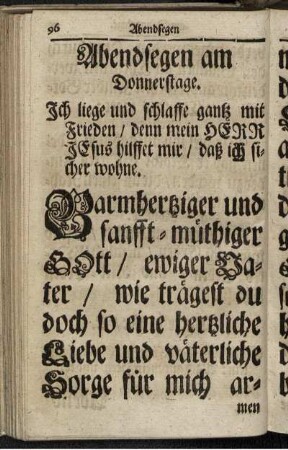 96 Abendsegen
Abendsegen am
Donnerstage.
Ich liege und schlaffe gantz mit
Frieden / denn mein HERR
JEsus hilffet mir / daß ich si-
cher wohne.
Barmhertziger und
sanfft-müthiger
GOtt / ewiger Va-
ter / wie trägest du
doch so eine hertzliche
Liebe und väterliche
Sorge für mich ar-
men